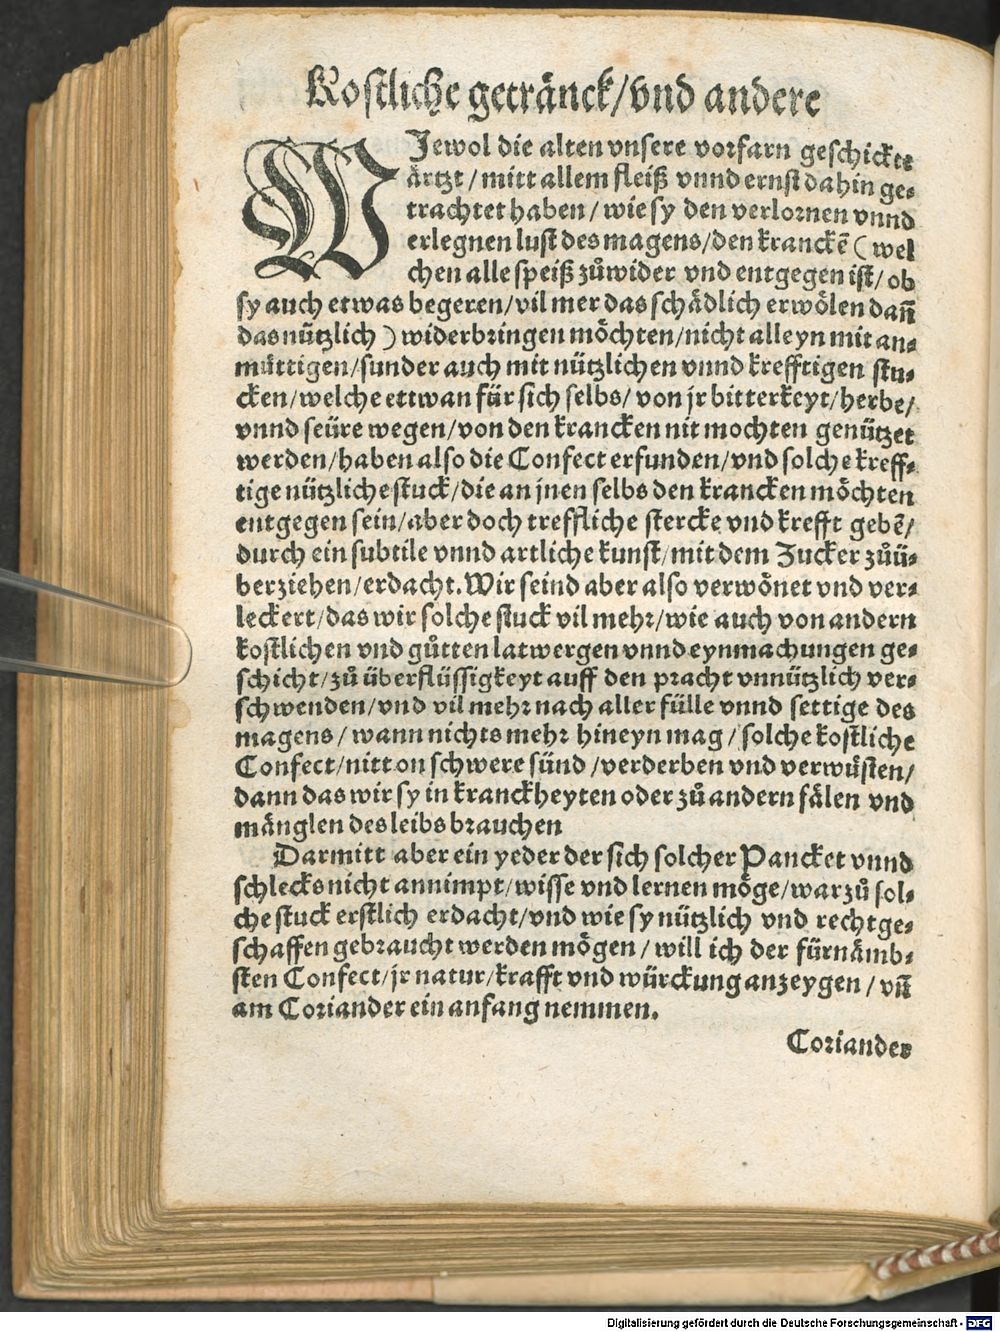 Kostliche getränck/vnd andere
WJewol die alten vnsere vorfarn geschickte
ärtzt/mitt allem fleiß vnnd ernst dahin ge⸗
trachtet haben/wie sy den verlornen vnnd
erlegnen lust des magens/den kranckē (wel
chen alle speiß zůwider vnd entgegen ist/ob
sy auch etwas begeren/vil mer das schädlich erwölen dañ
das nützlich) widerbringen möchten/nicht alleyn mit an⸗
müttigen/sunder auch mit nützlichen vnnd krefftigen stu⸗
cken/welche ettwan für sich selbs/von jr bitterkeyt/herbe/
vnnd seüre wegen/von den krancken nit mochten genützet
werden/haben also die Confect erfunden/vnd solche kreff⸗
tige nützliche stuck/die an jnen selbs den krancken möchten
entgegen sein/aber doch treffliche stercke vnd krefft gebē/
durch ein subtile vnnd artliche kunst/mit dem Zucker zůü⸗
berziehen/erdacht. Wir seind aber also verwönet vnd ver⸗
leckert/das wir solche stuck vil mehr/wie auch von andern
kostlichen vnd gůtten latwergen vnnd eynmachungen ge⸗
schicht/zů überflüssigkeyt auff den pracht vnnützlich ver⸗
schwenden/vnd vil mehr nach aller fülle vnnd settige des
magens/wann nichts mehr hineyn mag/solche kostliche
Confect/nitt on schwere sünd/verderben vnd verwüsten/
dann das wir sy in kranckheyten oder zů andern fälen vnd
mänglen des leibs brauchen
Darmitt aber ein yeder der sich solcher Pancket vnnd
schlecks nicht annimpt/wisse vnd lernen möge/warzů sol⸗
che stuck erstlich erdacht/vnd wie sy nützlich vnd rechtge⸗
schaffen gebraucht werden mögen/will ich der fürnämb⸗
sten Confect/jr natur/krafft vnd würckung anzeygen/vñ
am Coriander ein anfang nemmen.
Coriander
Digitalisierung gefördert durch die Deutsche Forschungsgemeinschaft - DFG